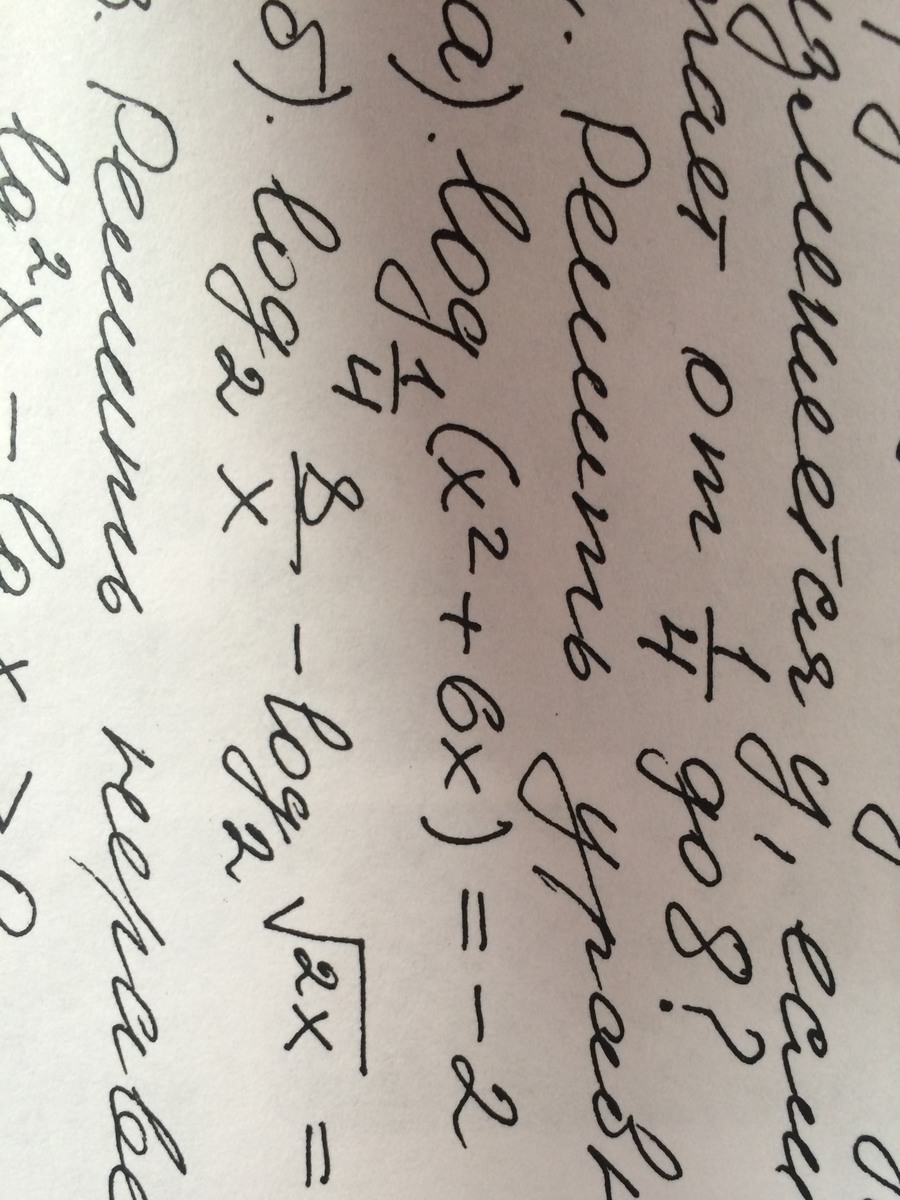 изменяется у, если
от 1/4 до 8?
Решить уравн
а). log_{1/4} (x² + 6x) = -2
б). log_2 8/x - log_2 √2x =
3. Решить неравен
lg²x - lg x > 0